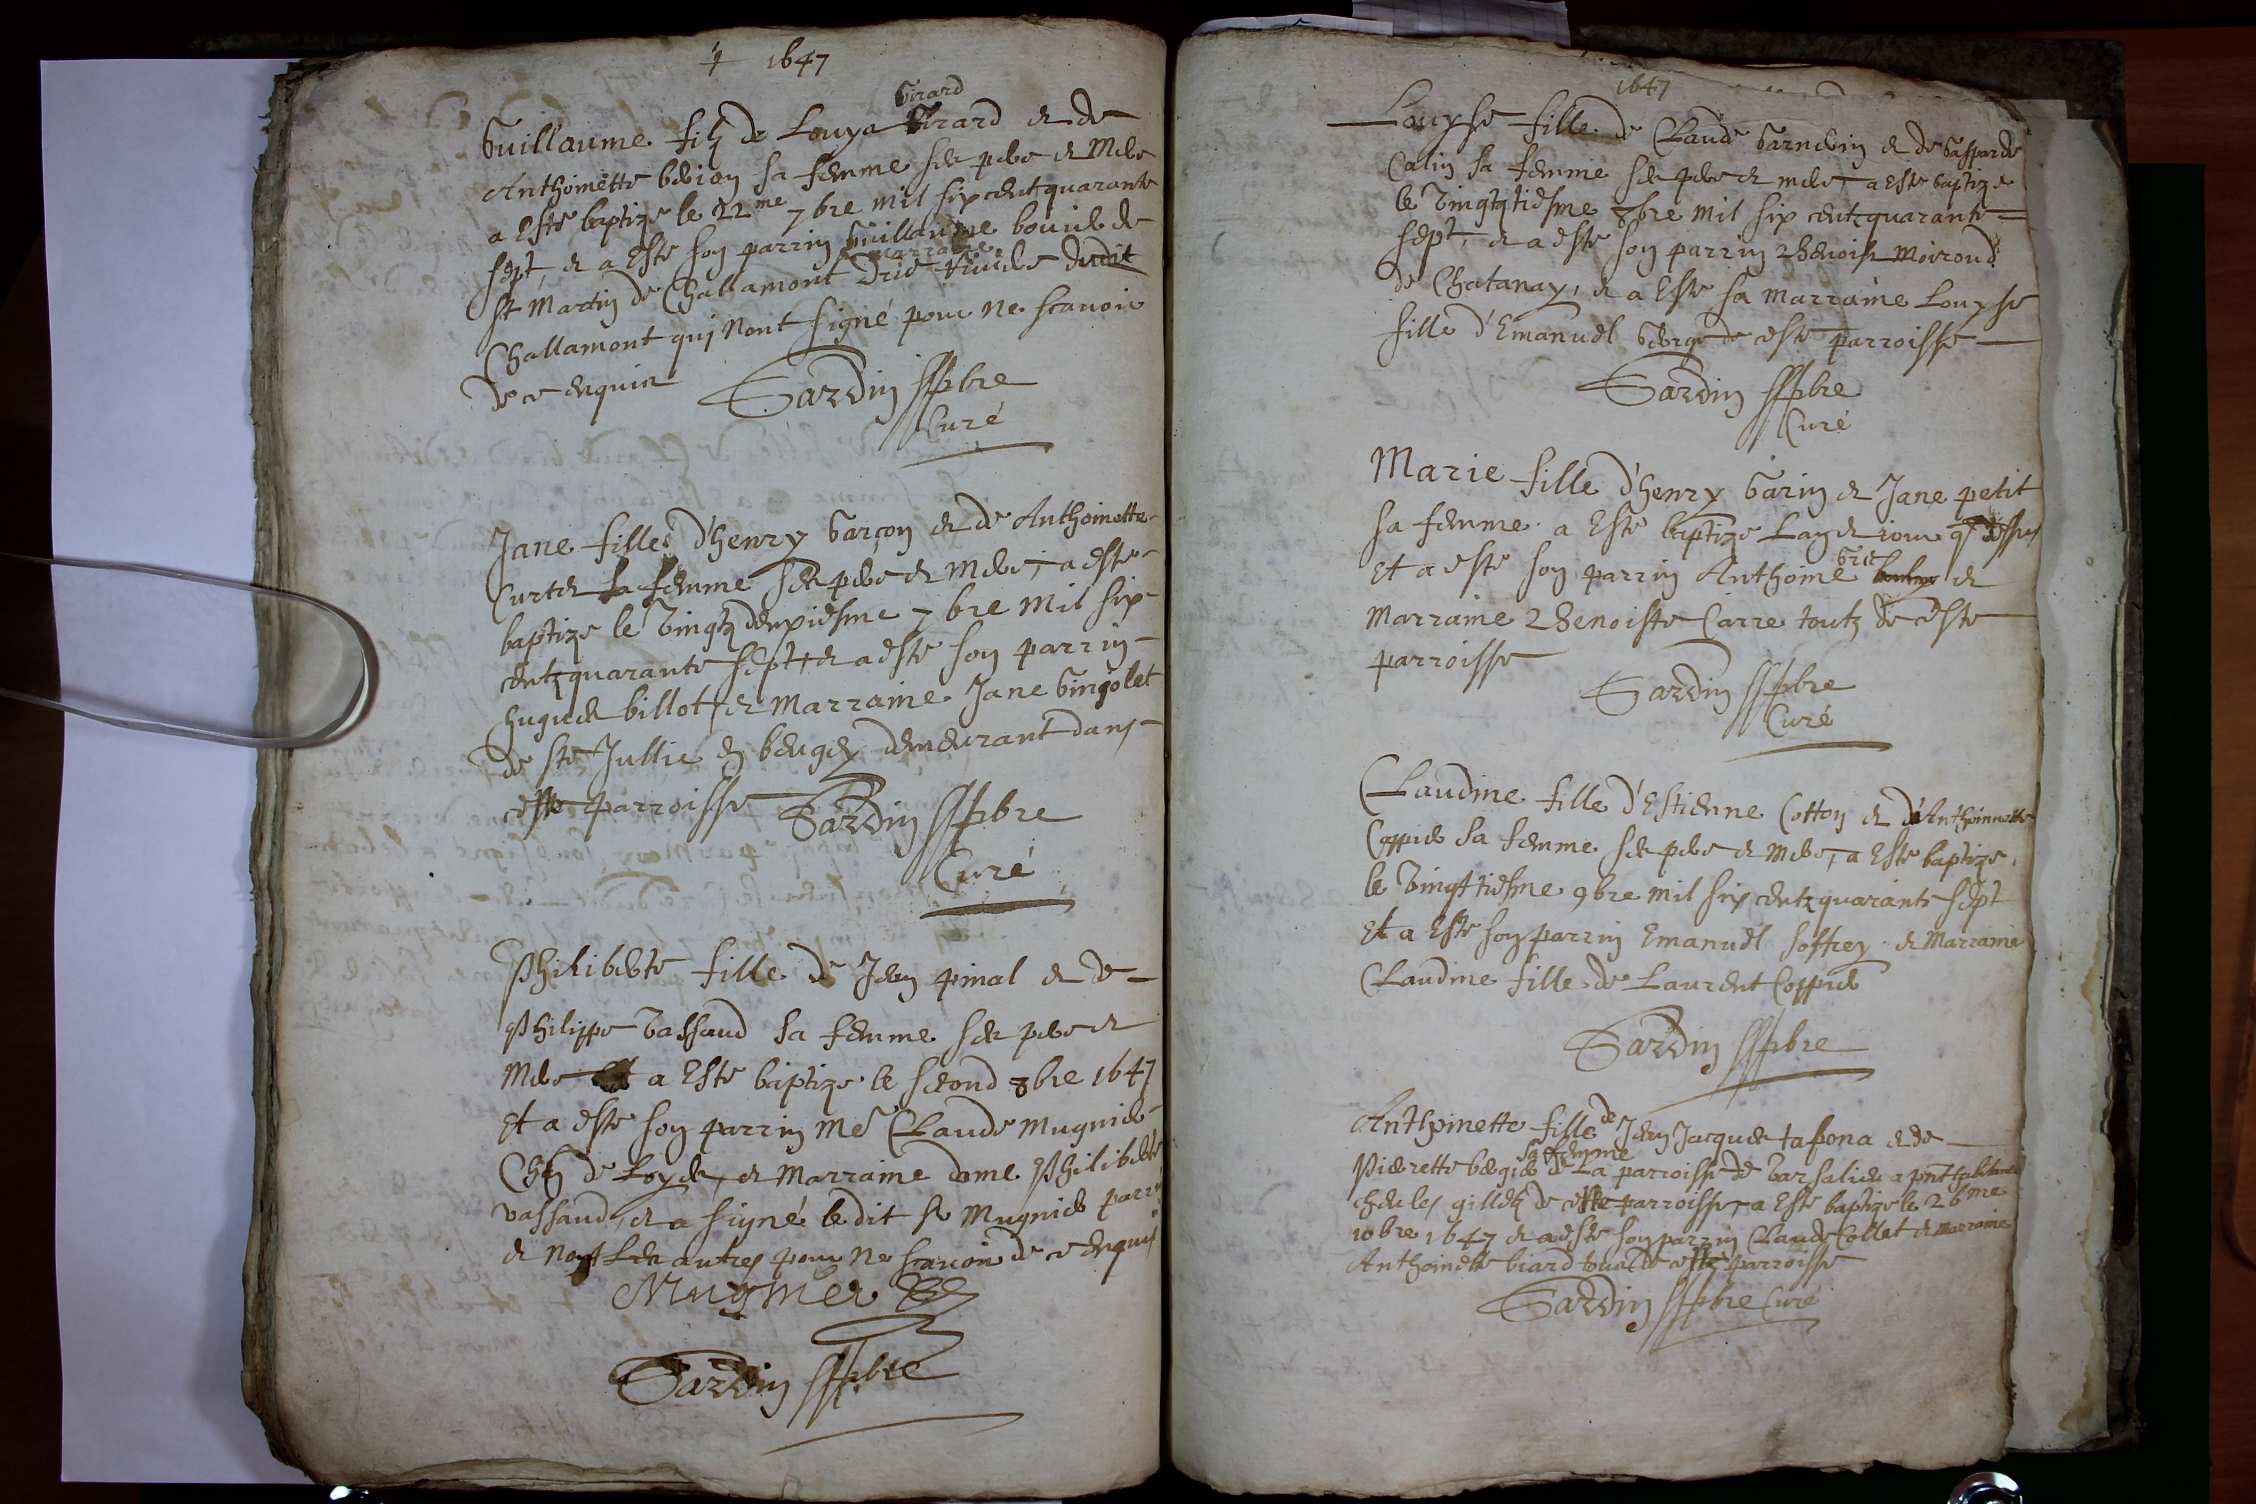 1647
Girard
Guillaume filz de Louys Girard et de
Anthoinette sa femme ses pere et mere
a esté baptize le 22me 7bre mil six centz quarante
sept, et a esté son parrin Guillaume bouier de
marraine
St Martin de Challamont dudit
Challamont qui n'ont signé pour ne scavoir
de ce enquis Sardin pbre
Curé
Jane filles d'henry Garçon et de Anthoinette
Curtet sa femme ses pere et mere, a esté
baptize le vingtz deuxiesme 7bre mil six
centz quarante sept, et a esté son parrin
hugues billot et marraine Jane Gingolet
de ste Jullie en beugey demeurant dans
ceste parroisse Sardin pbre
Curé
Philiberte fille de Jean pinal et de
Philippe Vassaud sa femme ses pere et
mere a esté baptize le second 8bre 1647
Et a esté son parrin Me Claude mugnier
Chên de Loyes, et marraine dame Philiberte
vassaud, et a signé ledit sr mugnier parrin
et non les autres pour ne scavoir de ce enquis
Mugnier
Sardin pbre
1647
Louyse fille de Claude Garnerin et de Gasparde
Catin sa femme ses pere et mere, a esté baptize
le 7bre mil six centz quarante
sept, et a esté son parrin Benoist Moiroud
de Chatanay, et a esté sa marraine Louyse
fille d'Emanuel George de ceste parroisse
Sardin pbre
Curé
Marie fille d'henry Garin et Jane petit
sa femme a esté baptize L'an et iour q dessus
Et a esté son parrin Anthoine et
marraine Benoiste Carre toutz de ceste
parroisse
Sardin pbre
Curé
Claudine fille d'Estienne Cotton et d'Anthoinette
Coppier sa femme ses pere et mere, a esté baptize
le vingttiesme 9bre mil six centz quarante sept
Et a esté son parrin Emanuel soffrey et marraine
Claudine fille de Laurent Coppier
Sardin pbre
Anthoinette fille de Jean Jacques tafona et de
sa femme
Pierrette de La parroisse de Varsalieu a pnt
gilletz de ceste parroisse, a esté baptize le 26me
10bre 1647 et a esté son parrin Claude Collet et marraine
Anthoinette biard de ceste parroisse
Sardin pbre Curé